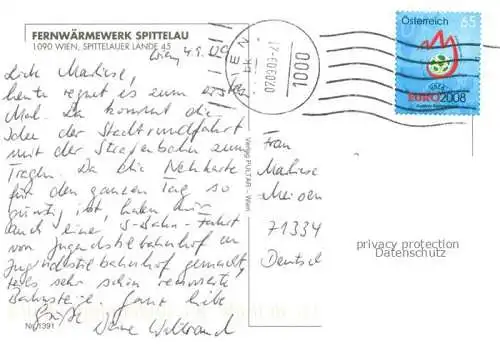 FERNWÄRMEWERK SPITTELAU
1090 WIEN, SPITTELAUER LÄNDE 45
Wien, 4.9.09
heute regnet es zum ersten
Mal. Da kommt die
Idee der Stadtrundfahrt
mit der Straßenbahn zum
Tragen. Da die Netzkarte
für den ganzen Tag so
günstig ist, haben wir
auch eine S-Bahn-Fahrt
von Jugendstilbahnhof zu
Jugendstilbahnhof gemacht,
teils sehr schön renovierte
Bahnsteige. Ganz liebe
Grüße Deine Waltraud
Nr. 1391
Verlag PULTAR - Wien
WIEN
07.09.09
1000
Österreich 65
EURO2008
Frau
71334
Deutschl
privacy protection
Datenschutz